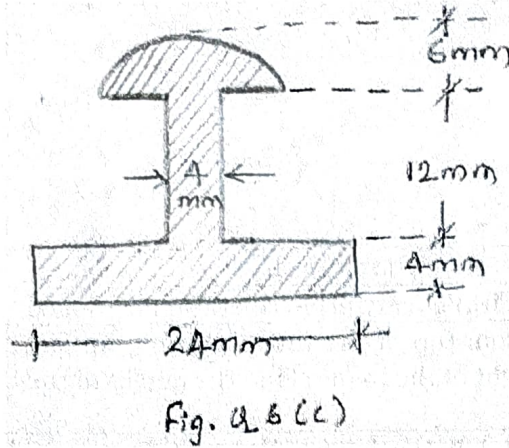 6mm
12mm
4
mm
4mm
24mm
Fig. Q 6 (c)